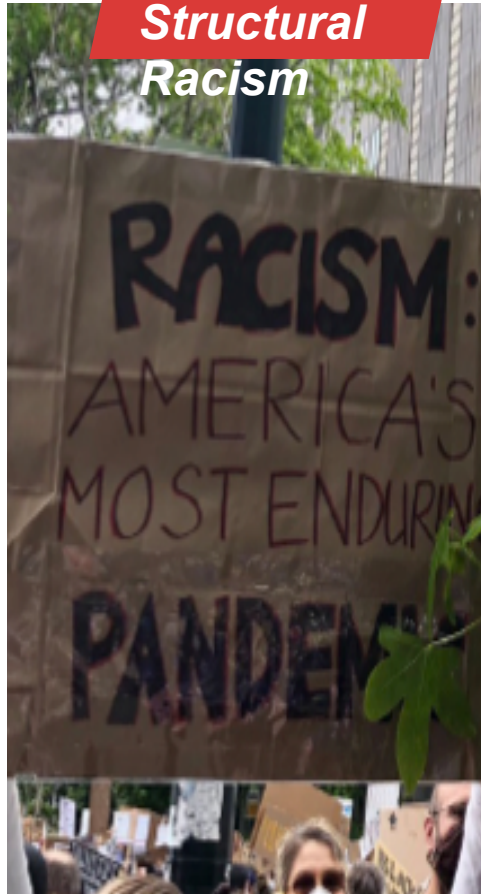 Structural
Racism
RACISM:
AMERICA'S
MOST ENDURIN
PANDEM